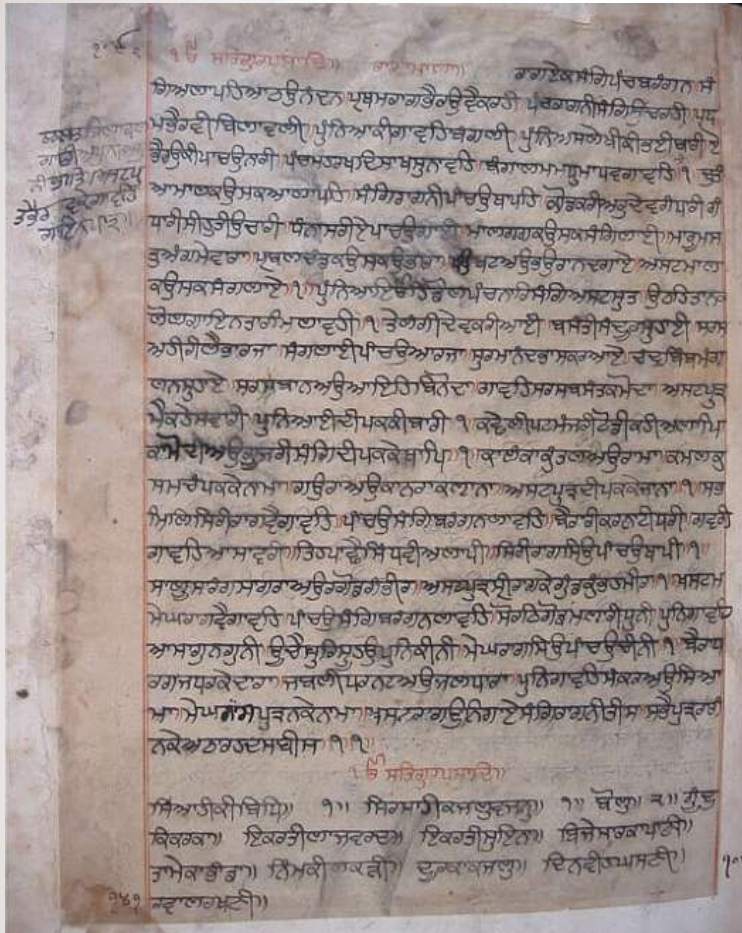 ੧ੴ ਸਤਿਗੁਰਪ੍ਰਸਾਦਿ॥ ਰਾਗਮਾਲਾ॥ ਰਾਗਏਕਸੰਗਿਪੰਚਬਰੰਗਨ ਸੰ
ਗਿਅਲਾਪਹਿਆਠਉਨੰਦਨ ਪ੍ਰਥਮਰਾਗਭੈਰਉਵੈਕਰਹੀ ਪੰਚਰਾਗਨੀਸੰਗਿਉਚਰਹੀ ਪ੍ਰਥ
ਮਭੈਰਵੀ ਬਿਲਾਵਲੀ ਪੁੰਨਿਆਕੀਗਾਵਹਿਬੰਗਲੀ ਪੁੰਨਿਅਸਲੇਖੀਕੀਭਈਬਾਰੀ ਏ
ਭੈਰਉਕੀਪਾਚਉਨਾਰੀ ਪੰਚਮਹਰਖਦਿਸਾਖਸੁਨਾਵਹਿ ਬੰਗਾਲਮਮਧੁਮਾਧਵਗਾਵਹਿ ੧
ਆਮਾਲਕਉਸਕਆਲਾਪਹਿ ਸੰਗਿਰਾਗਨੀਪਾਚਉਥਾਪਹਿ ਗੋਂਡਕਰੀਅਰੁਦੇਵਗੰਧਾਰੀ ਗੰ
ਧਾਰੀਸੀਹੁਤੀਉਚਰੀ ਧੰਨਾਸਰੀਏਪਾਚਉਗਾਈ ਮਾਲਰਾਗਕਉਸਕਸੰਗਿਲਾਈ ਮਾਰੂਮਸ
ਤੁਅੰਗਮੇਵਾਰਾ ਪ੍ਰਬਲਚੰਡਕਉਸਕਉਭਾਰਾ ਖਉਖਟਅਉਭਉਰਾਨਦਗਾਏ ਅਸਟਮਾਲ
ਕਉਸਕਸੰਗਲਾਏ ੧ ਪੁੰਨਿਆਇਅਉਹਿੰਡੋਲਪੰਚਨਾਰਿਸੰਗਿਅਸਟਸੁਤ ਉਠਹਿਤਾਨਕ
ਲੋਲਗਾਇਨਤਾਰਮਿਲਾਵਹੀ ੧ ਤੇਲੰਗੀਦੇਵਕਰੀਆਈ ਬਸੰਤੀਸੰਦੂਰਸੁਹਾਈ ਸਰਸ
ਅਹੀਰੀਲੈਭਾਰਜਾ ਸੰਗਲਾਈਪਾਂਚਉਆਰਜਾ ਸੁਰਮਾਨੰਦਭਾਸਕਰਆਏ ਚੰਦ੍ਰਬਿੰਬਮੰਗ
ਲਨਸੁਹਾਏ ਸਰਸਬਾਨਅਉਆਇਹਿਬਿਨੋਦਾ ਗਾਵਹਿਸਰਸਬਸੰਤਕਮੋਦਾ ਅਸਟਪੁਤ੍ਰ
ਮੈਕਹੇਸਵਾਰੀ ਪੁਨਿਆਈਦੀਪਕਕੀਬਾਰੀ ੧ ਕਛੇਲੀਪਟਮੰਜਰੀਟੋਡੀਕਹੀਅਲਾਪਿ
ਕਾਮੋਦੀਅਉਗੂਜਰੀਸੰਗਿਦੀਪਕਕੇਥਾਪਿ ੧ ਕਾਲੰਕਾਕੁੰਤਲਅਉਰਾਮਾ ਕਮਲਕੁ
ਸਮਚੰਪਕਕੇਨਾਮਾ ਗਉਰਾਅਉਕਾਨਰਾਕਲਾਨਾ ਅਸਟਪੁਤ੍ਰਦੀਪਕਕੇਜਾਨਾ ੧ ਸਭ
ਮਿਲਿਸਿਰੀਰਾਗਵੈਗਾਵਹਿ ਪਾਂਚਉਸੰਗਿਬਰੰਗਨਲਾਵਹਿ ਬੈਰਾਰੀਕਰਨਾਟੀਧਰੀ ਗਵਰੀ
ਗਾਵਹਿਆਸਾਵਰੀ ਤਿਹਪਾਛੈਸਿੰਧਵੀਅਲਾਪੀ ਸਿਰੀਰਾਗਸਿਉਪਾਂਚਉਥਾਪੀ ੧॥
ਸਾਲੂਸਾਰਗਸਾਗਰਾਅਉਰਗੋਂਡਗੰਭੀਰ ਅਸਟਪੁਤ੍ਰਸ੍ਰੀਰਾਗਕੇਗੁੰਡਕੁੰਭਹਮੀਰ ੧ ਖਸਟਮ
ਮੇਘਰਾਗਵੈਗਾਵਹਿ ਪਾਂਚਉਸੰਗਿਬਰੰਗਨਲਾਵਹਿ ਸੋਰਠਿਗੋਂਡਮਲਾਰੀਧੁਨੀ ਪੁਨਿਗਾਵਹਿ
ਆਸਾਗੁਨਗੁਨੀ ਊਚੈਸੁਰਿਸੂਹਉਪੁਨਿਕੀਨੀ ਮੇਘਰਾਗਸਿਉਪਾਂਚਉਚੀਨੀ ੧ ਬੈਰਾਧ
ਰਗਜਧਰਕੇਦਾਰਾ ਜਬਲੀਧਰਨਟਅਉਜਲਧਾਰਾ ਪੁਨਿਗਾਵਹਿਸੰਕਰਅਉਸਿਆ
ਮਾ ਮੇਘਰਾਗਪੁਤ੍ਰਨਕੇਨਾਮਾ ਖਸਟਰਾਗਉਨਿਗਾਏਸੰਗਿਰਾਗਨੀਤੀਸ ਸਭੈਪੁਤ੍ਰਰਾਗੰ
ਨਕੇਅਠਾਰਹਦਸਬੀਸ ੧ ੧॥
੧ੴ ਸਤਿਗੁਰਪ੍ਰਸਾਦਿ॥
ਸਿਆਹੀਕੀਬਿਧਿ॥ ੧॥ ੧॥ ਬੋਲੁ॥ ੨॥ ਗੂੰਦੁ
ਕਿਕਰਕਾ॥ ਇਕਰਤੀਲਾਜਵਰਦ॥ ਇਕਰਤੀਸੁਇਨਾ॥ ਬਿਜੈਸਾਰਕਾਪਾਣੀ॥
ਤਾਮੇਕਾਭਾਂਡਾ॥ ਨਿੰਮਕੀਲਕੜੀ॥ ਦਿਨਵੀਹਘਸਣੀ॥
ਰਵਾਲਰਖਣੀ॥